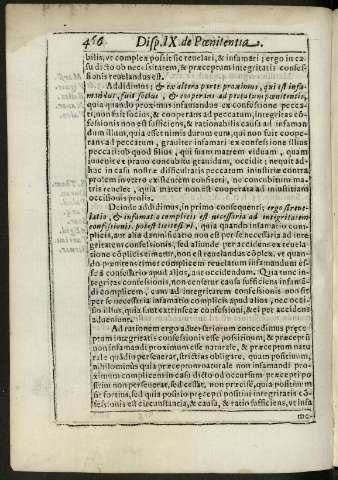 456 Disp. IX. de Pœnitentia.
bilis, vt complex possit sic reuelari, & infamari; ergo in ca-
su dicto ob necessitatem, & præceptum integritatis confes-
sionis reuelandus est.
Addidimus; & ex altera parte proximus, qui est infa-
mandus, fuit socius, & cooperans ad peccatum pœnitentis,
quia quando proximus infamandus ex confessione pecca-
ti, non fuit socius, & cooperans ad peccatum, integritas con-
fessionis non est ratio sufficiens, & rationabilis causa ad infaman
dum illum, quia esset nimis durum eum, qui non fuit coope-
rans ad peccatum, grauiter infamari ex confessione illius
peccati: vt quod filius, qui suam matrem viduam, quam
inuenit ex prauo concubitu grauidam, occidit; nequit ad-
huc in casu nostræ difficultatis peccatum iniustitiæ contra
prolem inuerso existente confiteri, ne concubinium ma-
tris reuelet, quia mater non est cooperata ad iniustitiam
occisionis prolis.
Deinde addidimus, in primo consequenti; ergo si reue-
latio, & infamatio complicis est necessaria ad integritatem
confessionis, potest licitè fieri, quia quando infamatio com-
plicis, aut alia damnificatio non est per se necessaria ad inte-
gritatem confessionis, sed aliunde per accidens ex reuela-
tione complicis timetur, non est reuelandus cõplex. vt quan-
do pœnitens timet complicem reuelatum infamandum es-
se à confessario apud alios, aut occidendum. Quia tunc in-
tegritas confessionis, non censetur causa sufficiens infaman-
di complicem, cum ad integritatem confessionis non sit
per se necessaria infamatio complicis apud alios, nec occi-
sio illius, quia sunt extrinsecæ confessioni, & ei per accidens
adueniunt.
Ad rationem ergo aduersariorum concedimus præce-
ptum integritatis confessionis esse positiuum, & præceptum
non infamandi proximum esse naturale, & præceptum natu-
rale quãdiu perseuerat, strictius obligare, quam positiuum,
nihilominùs quia præceptum naturale non infamandi pro-
ximum complicem in casu dicto ad occursum præcepti po
sitiui non perseuerat, sed cessat, non præcisè, quia positiuum
sit fortius, sed quia positio præcepti positiui integritatis cõ-
fessionis est circunstantia, & causa, & ratio sufficiens, vt infa
ma-